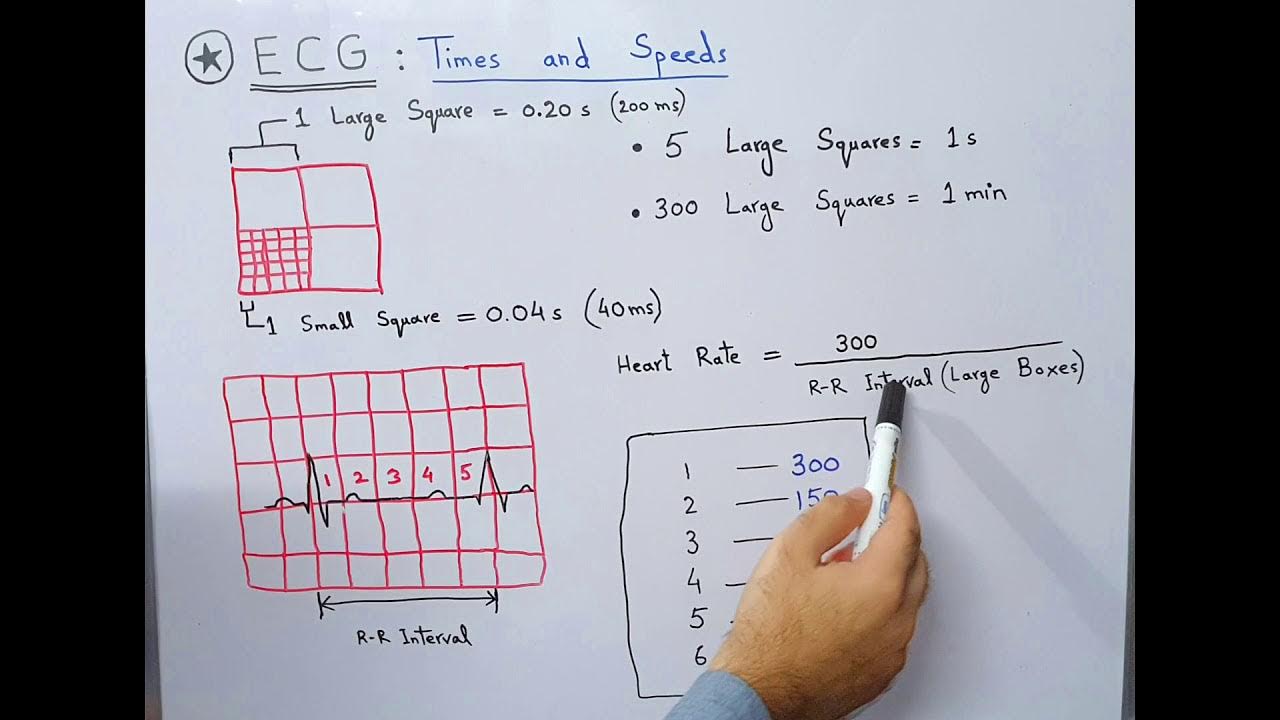 ECG : Times and Speeds
1 Large Square = 0.20 s (200 ms)
• 5 Large Squares = 1 s
• 300 Large Squares = 1 min
1 Small Square = 0.04 s (40 ms)
Heart Rate = 300
R-R Interval (Large Boxes)
1 2 3 4 5
R-R Interval
1 — 300
2 — 150
3 —
4 —
5
6